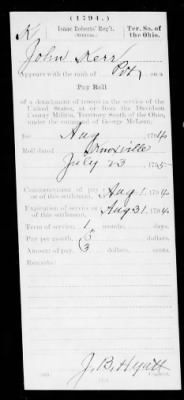 (1794.)
K Isaac Roberts' Reg't. Ter. So. of
the Ohio.
John Kerr
Appears with the rank of Pvt on a
Pay Roll
of a detachment of troops in the service of the
United States, at or from the Davidson
County Militia, Territory South of the Ohio,
under the command of George McLean,
for Aug, 1794
Roll dated Knoxville
July 23, 1795
Commencement of pay Aug 1, 1794
Expiration of service Aug 31, 1794
Term of service, 1 months, days.
Pay per month, 3 dollars, cents.
Amount of pay, 3 dollars, cents.
Remarks:
J. B. Hyatt